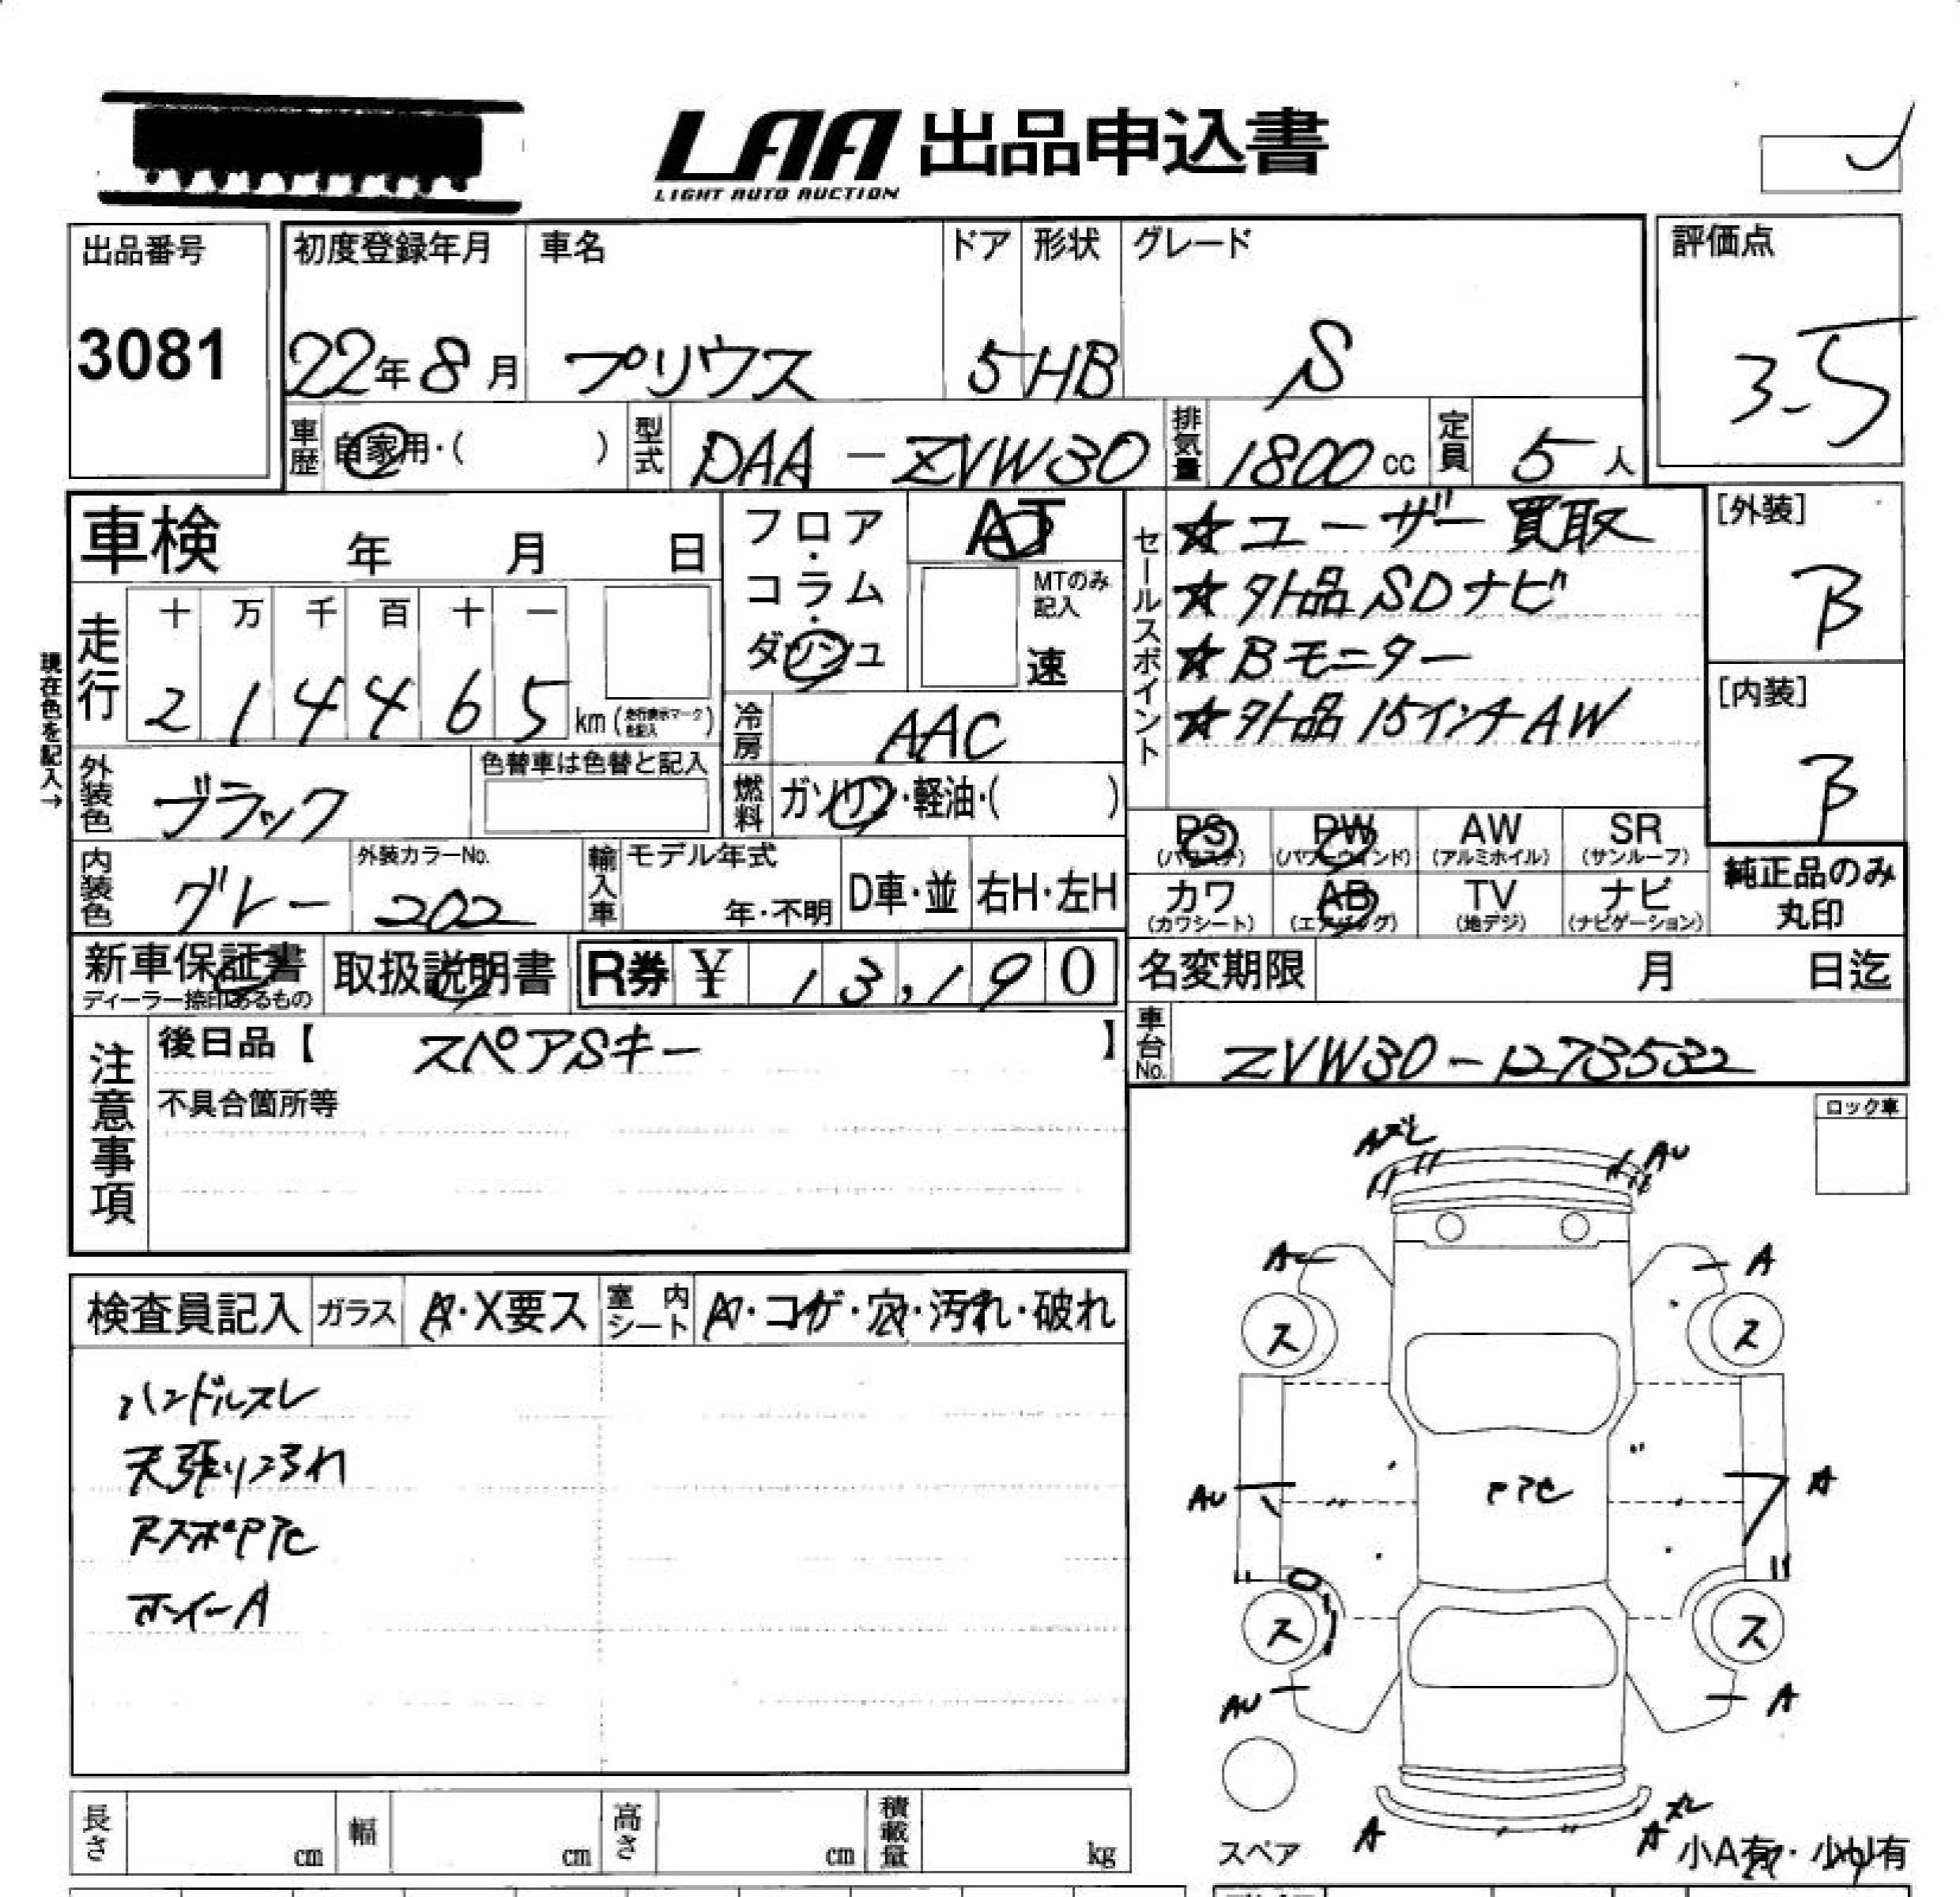 LAA 出品申込書
LIGHT AUTO AUCTION
出品番号
3081
初度登録年月
22年8月
車名
プリウス
ドア
5
形状
HB
グレード
S
評価点
3.5
車歴
自家用・( )
型式
DAA-ZVW30
排気量
1800cc
定員
5人
車検 年 月 日
フロア・コラム・ダッシュ
AT
MTのみ記入
速
セールスポイント
☆ユーザー買取
☆外品SDナビ
☆Bモニター
☆外品15インチAW
[外装]
B
[内装]
B
現在色を記入→
走行
十 万 千 百 十 一
2 1 4 4 6 5 km (走行表示マークを記入)
冷房
AAC
外装色
ブラック
色替車は色替と記入
燃料
ガソリン・軽油・( )
PS
(パワステ)
PW
(パワーウインド)
AW
(アルミホイル)
SR
(サンルーフ)
カワ
(カワシート)
AB
(エアバッグ)
TV
(地デジ)
ナビ
(ナビゲーション)
純正品のみ
丸印
内装色
グレー
外装カラーNo.
202
輸入車
モデル年式
年・不明
D車・並
右H・左H
新車保証書
ディーラー捺印あるもの
取扱説明書
R券 ¥ 13,190
名変期限 月 日迄
注意事項
後日品【 スペアSキー 】
不具合箇所等
車台No.
ZVW30-1273532
ロック車
検査員記入
ガラス
A・X要ス
室内シート
A・コゲ・穴・汚れ・破れ
ハンドルスレ
天張りよごれ
ホイールA
AU
A
A
ス
ス
AU
A
ス
ス
AU
A
スペア
A
A
小A有・小U有
長さ cm
幅 cm
高さ cm
積載量 kg